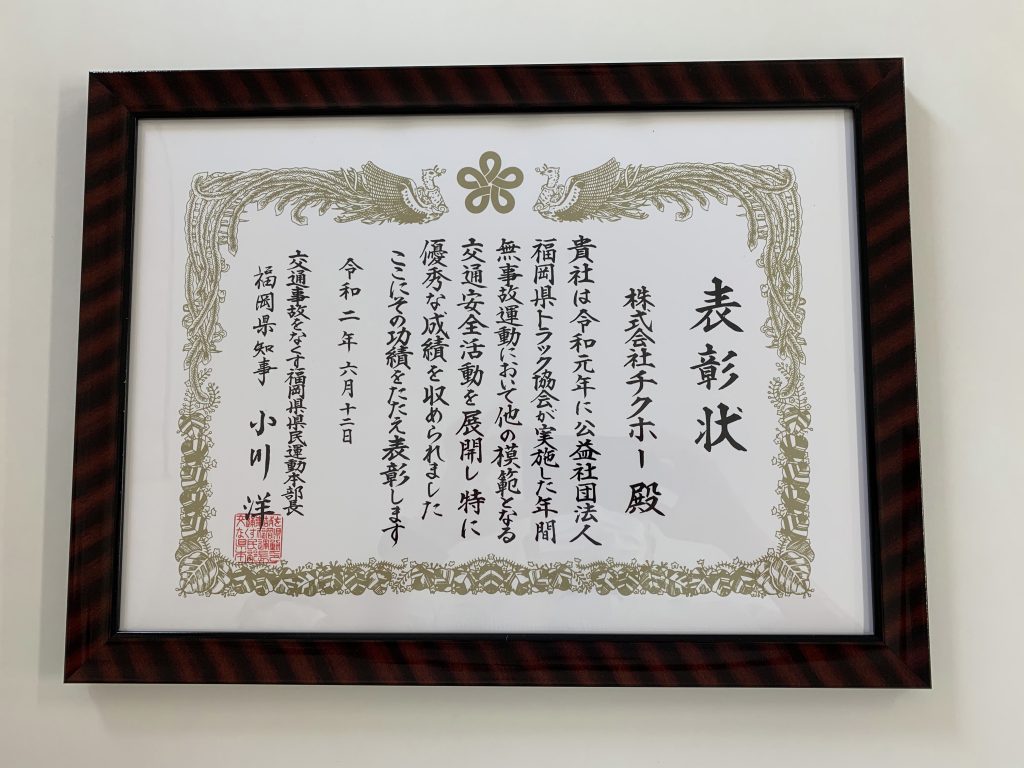 表彰状
株式会社チクホー殿
貴社は令和元年に公益社団法人
福岡県トラック協会が実施した年間
無事故運動において他の模範となる
交通安全活動を展開し特に
優秀な成績を収められました
ここにその功績をたたえ表彰します
令和二年六月十二日
交通事故をなくす福岡県県民運動本部長
福岡県知事 小川洋